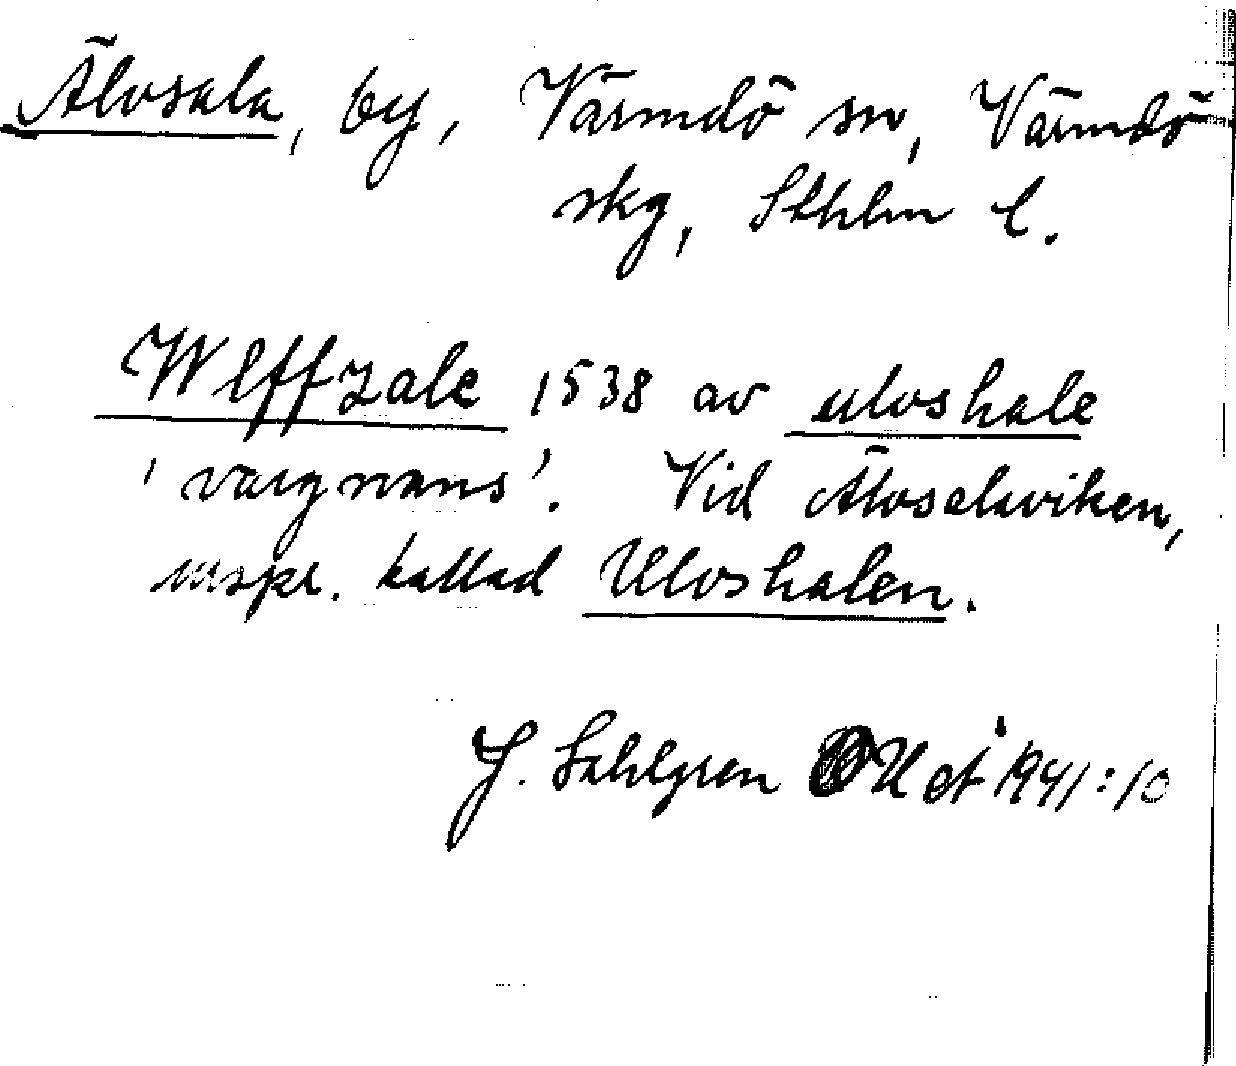 Älvsala, by, Värmdö sn, Värmdö
skg, Sthlm l.
Wlffzale 1538 av ulvshale
'vargnäns'. Vid Älvsalaviken,
urspr. kallad Ulvshalen.
J. Sahlgren OUÅ 1941:10